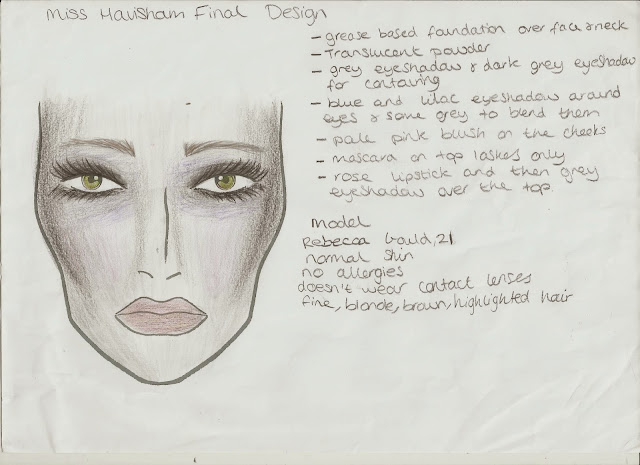 Miss Havisham Final Design
- grease based foundation over face & neck
- Translucent powder
- grey eyeshadow & dark grey eyeshadow
for contouring
- blue and lilac eyeshadow around
eyes & some grey to blend them
- pale pink blush on the cheeks
- mascara on top lashes only
- rose lipstick and then grey
eyeshadow over the top.
Model
Rebecca Gould, 21
normal skin
no allergies
doesn't wear contact lenses
fine, blonde, brown, highlighted hair